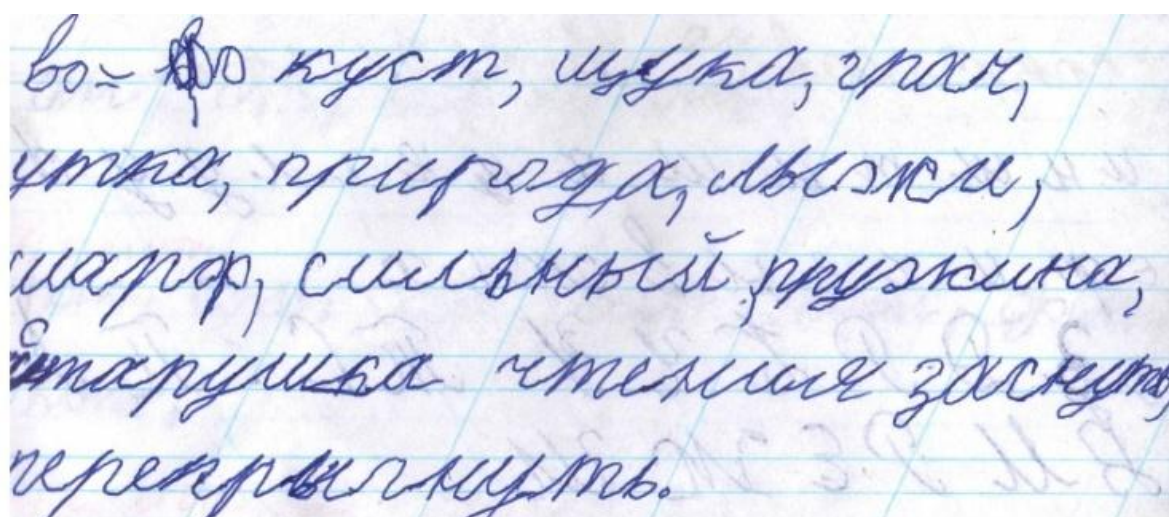 во- во куст, щука, грач,
утка, природа, лыжи,
шарф, сильный, пружина,
старушка чтения заснуть,
перекрыгнуть.